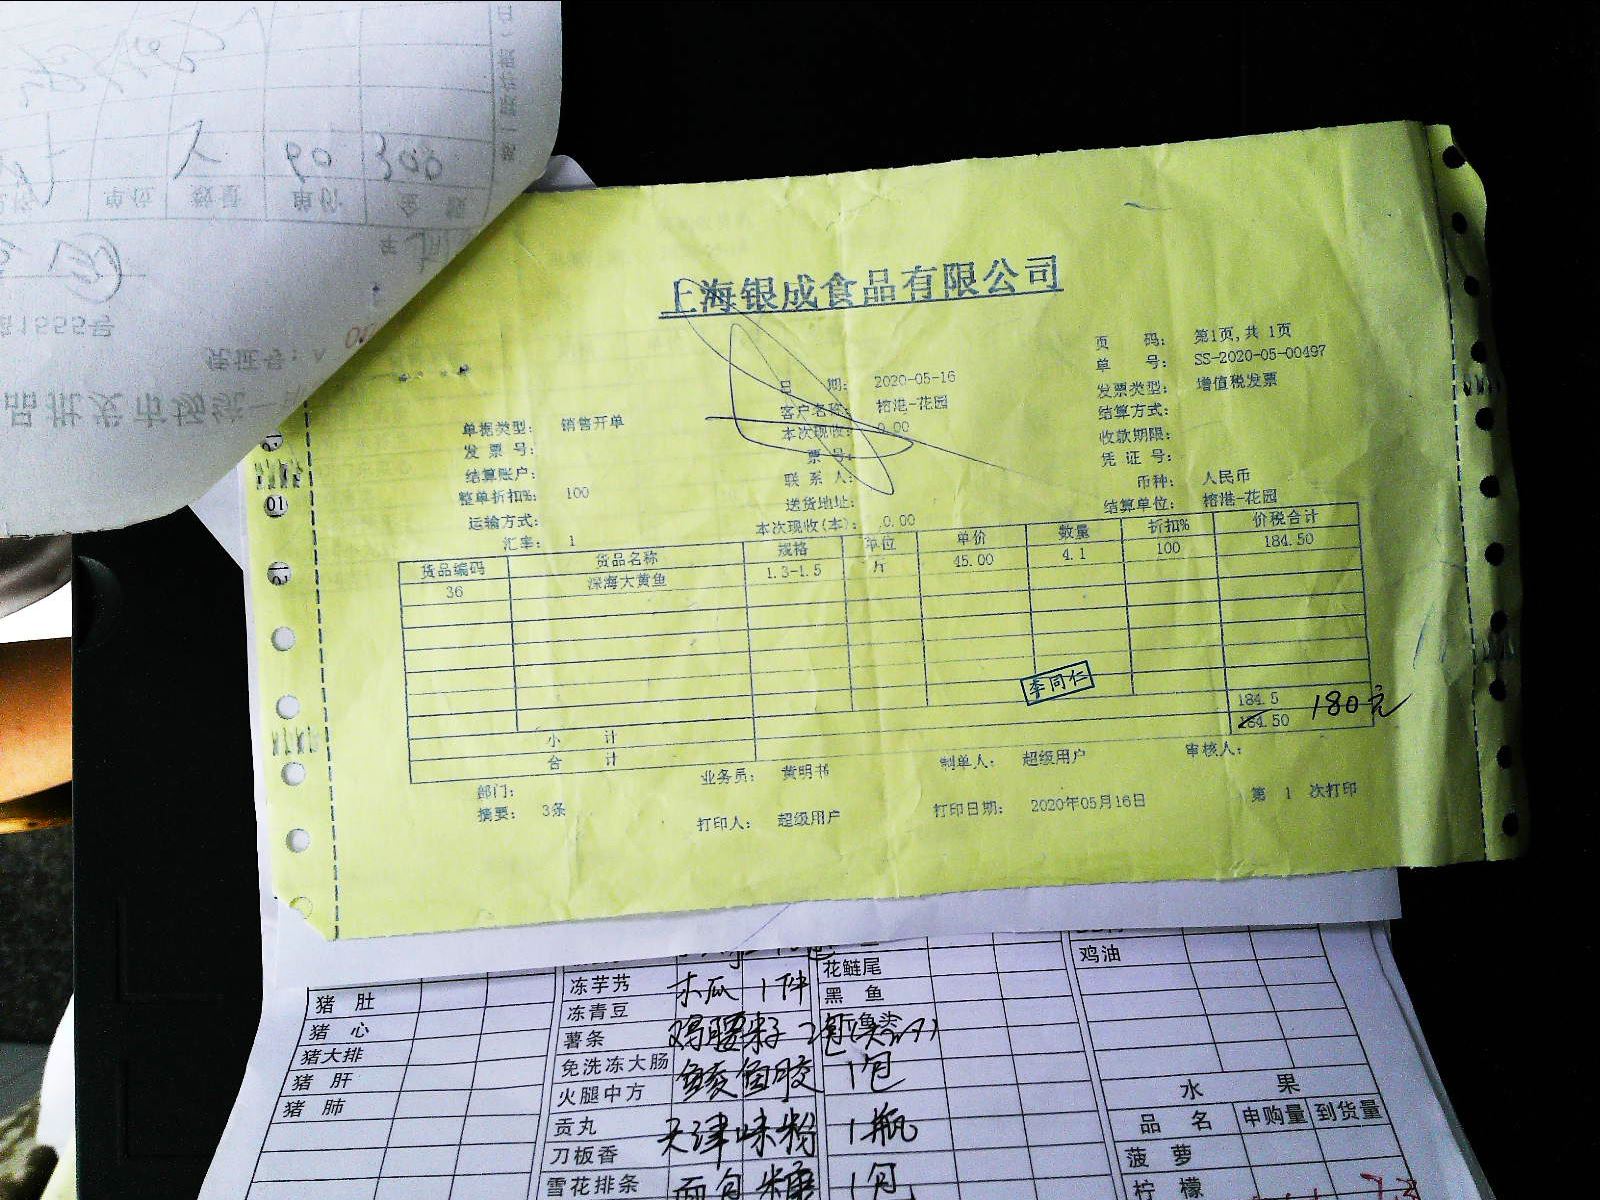 人 90 300
单位 数量 单价 金 额
1555号
凭证号:
品批发市场统一
上海银成食品有限公司
页 码: 第1页,共 1页
单 号: SS-2020-05-00497
日 期: 2020-05-16
发票类型: 增值税发票
客户名称: 榕港-花园
结算方式:
单据类型: 销售开单
本次现收: 0.00
收款期限:
发 票 号:
票 号:
凭 证 号:
结算账户:
联 系 人:
币种: 人民币
整单折扣%: 100
送货地址:
结算单位: 榕港-花园
运输方式:
本次现收(本): 0.00
汇率: 1
货品编码 货品名称 规格 单位 单价 数量 折扣% 价税合计
36 深海大黄鱼 1.3-1.5 斤 45.00 4.1 100 184.50
李同仁
小 计 184.5
合 计 184.50 180元
业务员: 黄明书 制单人: 超级用户 审核人:
部门:
摘要: 3条 打印人: 超级用户 打印日期: 2020年05月16日 第 1 次打印
花鲢尾 鸡油
猪 肚 冻芋艿 木瓜 1件 黑 鱼
猪 心 冻青豆
猪大排 薯条 鸡腰籽
猪 肝 免洗冻大肠 鲮鱼胶 1包 水 果
猪 肺 火腿中方 品 名 申购量 到货量
贡丸 天津味粉 1瓶
刀板香 菠 萝
雪花排条 面包糠 1包 柠 檬